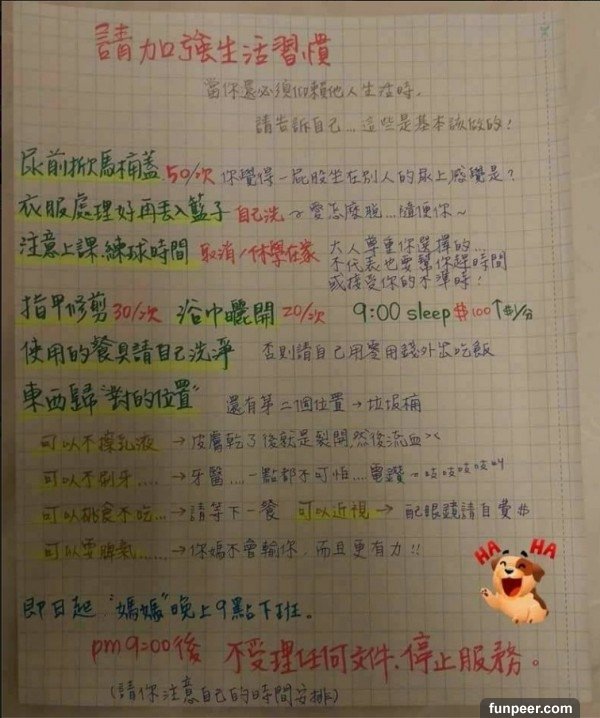 請加強生活習慣
當你還必須仰賴他人生活時,
請告訴自己...這些是基本該做的!
尿前掀馬桶蓋 50/次 你覺得一屁股坐在別人的尿上感覺是?
衣服處理好再丟入籃子 自己洗~要怎麼脫...隨便你~
注意上課.練球時間 取消/休學在家 大人尊重你選擇的...
不代表也要幫你趕時間
或接受你的不準時!
指甲修剪 30/次 浴巾曬開 20/次 9:00 sleep $100↑$1/分
使用的餐具請自己洗淨 否則請自己用零用錢外出吃飯
東西歸"對的位置" 還有第二個位置→垃圾桶
可以不擦乳液 →皮膚乾了後就是裂開,然後流血><
可以不刷牙..... →牙醫....一點都不可怕....電鑽~吱吱吱吱叫
可以挑食不吃... →請等下一餐 可以近視→配眼鏡請自費$
可以耍脾氣...... →你媽不會輸你,而且更有力!!
HA HA
即日起"媽媽"晚上9點下班。
pm9:00後 不受理任何文件、停止服務。
(請你注意自己的時間安排)
funpeer.com